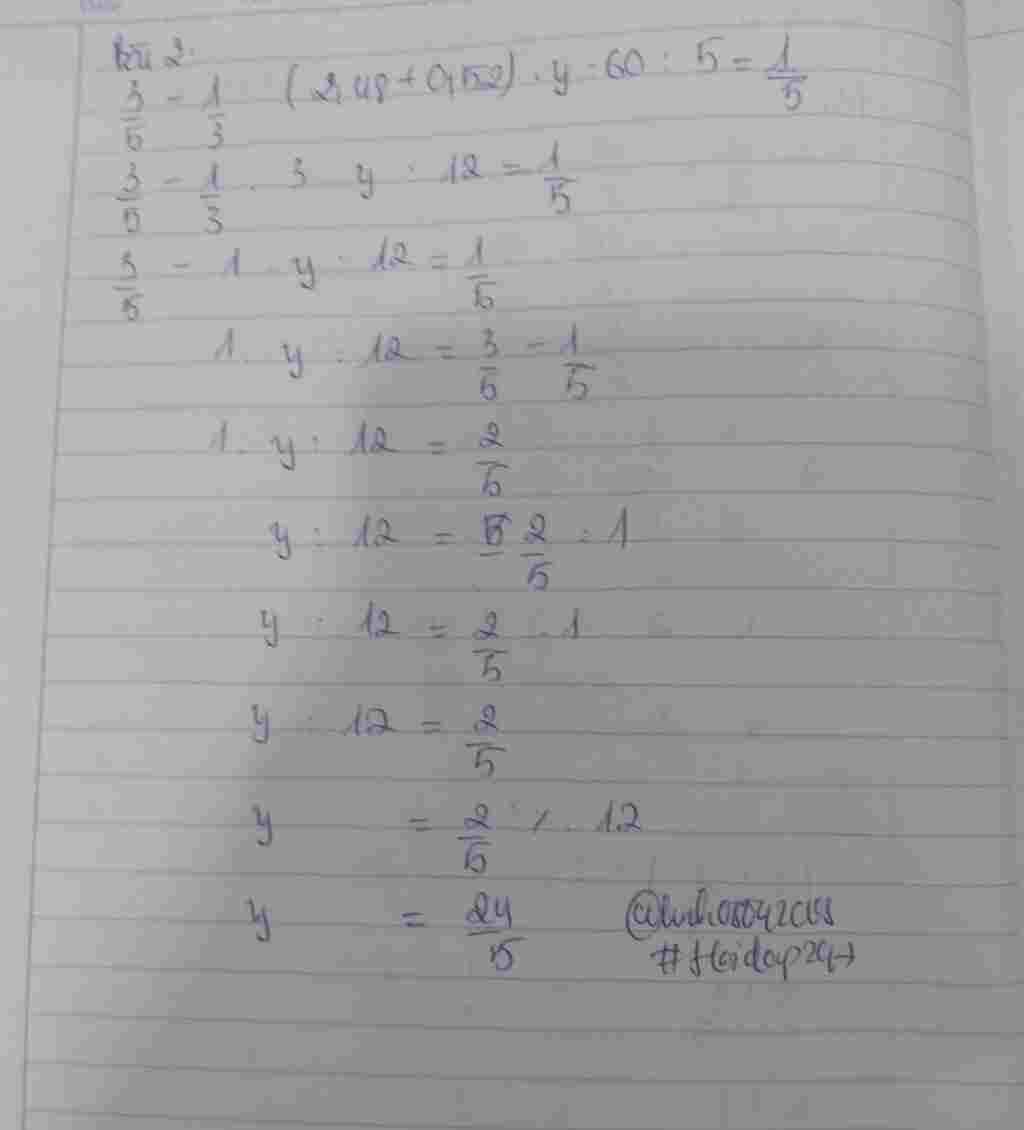 Bài 2:
3/5 - 1/3 (2,48 + 0,52) . y : 60 : 5 = 1/5
3/5 - 1/3 . 3 y : 12 = 1/5
3/5 - 1 . y : 12 = 1/5
1 . y : 12 = 3/5 - 1/5
1 . y : 12 = 2/5
y : 12 = 2/5 : 1
y : 12 = 2/5 . 1
y : 12 = 2/5
y = 2/5 . 12
y = 24/5
#Hoidap247